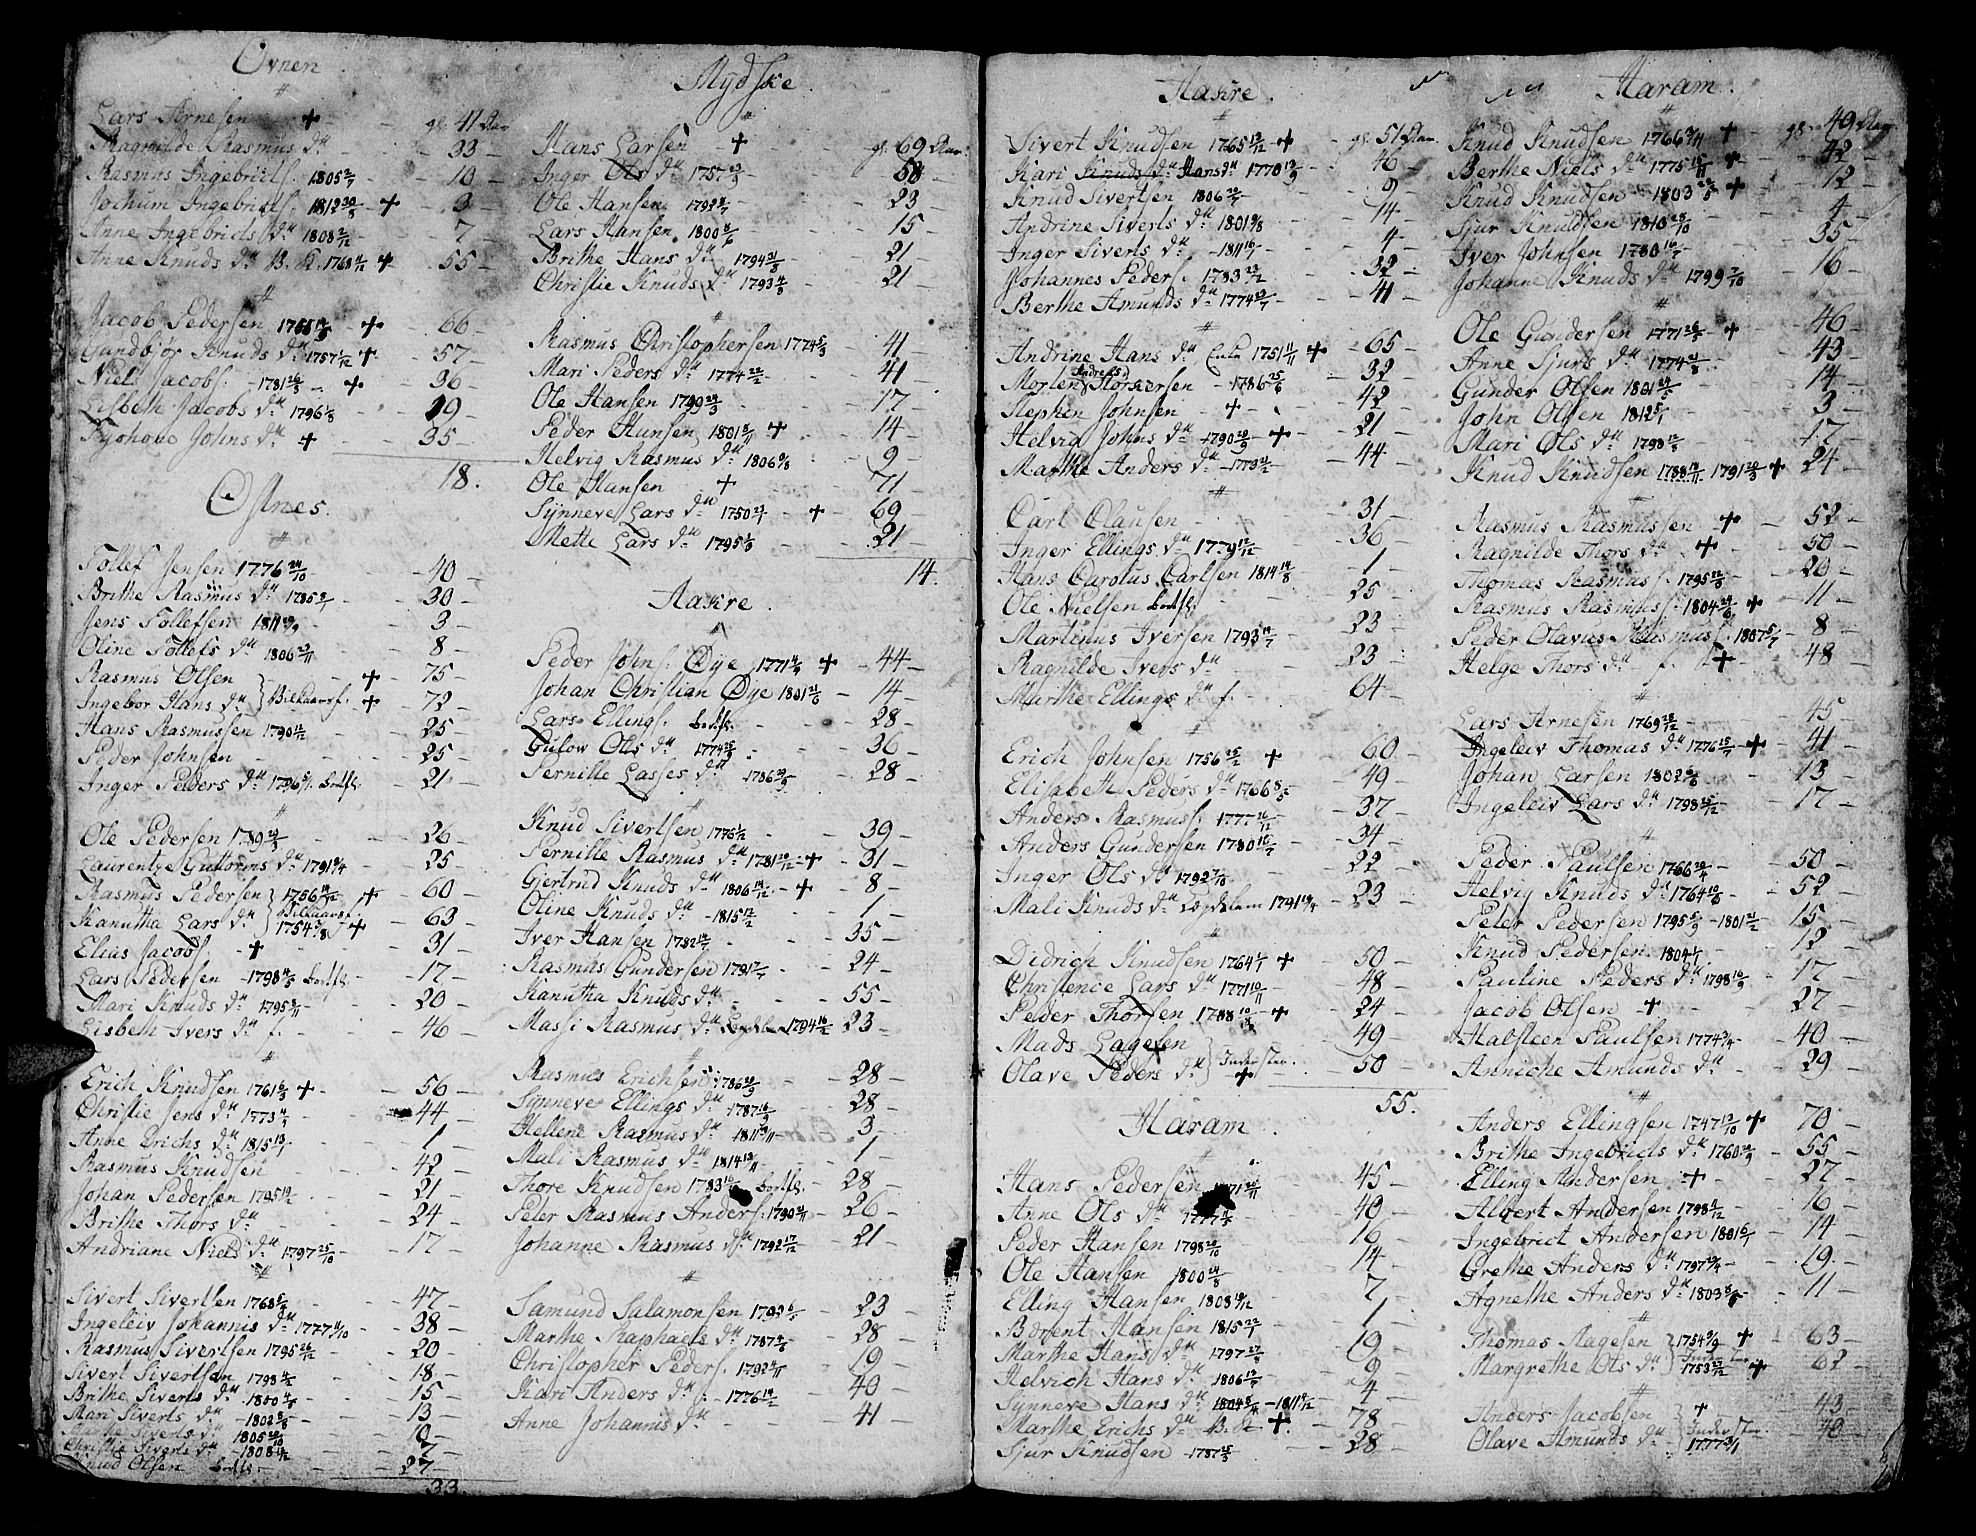 Ovnen
Lars Arnesen + gl. 41 Aar
Magnilde Rasmus dr. 33
Rasmus Ingebricts. 1805 2/7 10
Jochum Ingebricts. 1812 30/8 + 3
Anne Ingebricts dr. 1808 2/12 7
Anne Knuds dr. B. K. 1768 11/12 + 55
Jacob Pedersen + 66
Gundbjør Knuds dr. 1757 1/12 + 57
Niels Jacobs. 1781 26/3 + 36
Lisbeth Jacobs dr. 1796 1/8 19
Johns dr. + 35
18.
Ostnes.
Tollef Jensen 1776 24/10 40
Brithe Rasmus dr. 1785 30
Jens Tollefsen 3
Oline Tollefs dr. 1806 23/11 8
Rasmus Olsen + 75
Ingebor Hans dr. Vilkaarsf. + 72
Hans Rasmussen 1790 12/12 25
Peder Johnsen 25
Inger Peders dr. 1796 21
Ole Pedersen 26
Laurentze Guttorms dr. 1791 25
Rasmus Pedersen 1756 14/12 + 60
Kanutha Lars dr. Vilkaarsf. 1754 5/8 + 63
Elias Jacobs. + 31
Lars Pedersen 1798 4/5 17
Mari Knuds dr. 1795 20
Lisbeth Ivers dr. f. 46
Erich Knudsen 1761 6/3 + 56
Christie Jens dr. 1773 44
Anne Erichs dr. 1815 13/1 1
Rasmus Knudsen 42
Johan Pedersen 1795 21
Brithe Thors dr. 24
Andriane Niels dr. 1797 25/10 17
Sivert Sivertsen 1768 5/2 47
Ingeleiv Johannis dr. 1777 38
Rasmus Sivertsen 1795 26/12 20
Sivert Sivertsen 1798 18
Brithe Siverts dr. 1800 4/8 15
Mari Siverts dr. 1802 8/8 13
Marthe Siverts dr. 1805 20/10
Christie Siverts dr. 1808 7
Knud Olsen 27
33.
Mydske
Hans Larsen + gl. 69 Aar
Inger Ols dr. 1757 23/9 58
Ole Hansen 1792 23
Lars Hansen 1800 8/6 15
Brithe Hans dr. 1794 21
Christie Knuds dr. 1793 21
Rasmus Christophersen 1774 5/3 41
Mari Peders dr. 1774 22/2 41
Ole Hansen 1799 24/3 17
Peder Hansen 1801 8/11 + 14
Helvig Rasmus dr. 1806 9
Ole Hansen + 71
Synneve Lars dr. 1750 23/1 + 69
Mette Lars dr. 1795 21
14.
Aakre.
Peder Johns. Øye 1771 + 44
Johan Christian Øye 1801 21/6 14
Lars Ellings. 28
Gulow Ols dr. 1774 36
Pernille Lasses dr. 1786 28
Knud Sivertsen 1776 1/2 39
Pernille Rasmus dr. 1781 20/12 + 31
Gjertrud Knuds dr. 1806 14/12 + 8
Oline Knuds dr. 1815 12/12 1
Iver Hansen 1782 35
Rasmus Gundersen 1791 24
Kanutha Knuds dr. 55
Massi Rasmus dr. 1794 16/2 23
Rasmus Erichsen 1786 20/9 28
Synneve Ellings dr. 1787 16/9 28
Hellene Rasmus dr. 1811 3
Mali Rasmus dr. 1814 13/11 1
Thore Knudsen 1783 28
Peter Rasmus Anders. 1790 26
Johanne Rasmus dr. 1792 17/12 21
Samund Salamonsen 1793 6/5 23
Marthe Raphaels dr. 1787 28
Christopher Peders. 1792 19
Kari Anders dr. f. 1776 14/2 40
Anne Johannis dr. 41
Aakre.
Sivert Knudsen 1765 12/12 + gl. 51 Aar
Kari Knuds dr. Hans dr. 1770 12/9 46
Knud Sivertsen 1806 9
Andrine Siverts dr. 1801 14
Inger Siverts dr. 1811 16/7 4
Johannes Peders. 1783 23/12 32
Berthe Amunds dr. 1774 23/7 41
Andrine Hans dr. Enke 1751 11/11 + 65
Morten Andreas Torstersen 1786 25/6 32
Stephen Johnsen + 42
Helvig Johns dr. 1790 20/9 + 21
Marthe Anders dr. 1773 44
Carl Olausen 31
Inger Ellings dr. 1779 12/12 36
Hans Carolus Carlsen 1814 14/8 1
Ole Nielsen 25
Martinus Iversen 1793 14/7 23
Ragnilde Ivers dr. 23
Marthe Ellings dr. f. 64
Erich Johnsen 1756 25/12 + 60
Elisabeth Peders dr. 1766 8/5 49
Anders Rasmuss. 1777 26/12 37
Anders Gundersen 1780 16/7 34
Inger Ols dr. 1792 7/10 22
Mali Knuds dr. 1791 23
Didrich Knudsen 1764 1/1 + 50
Christence Lars dr. 1771 10/11 48
Peder Thorsen 1788 + 24
Mads Lagesen + Inderster. 49
Olave Peders dr. + 50
55.
Haram.
Hans Pedersen 45
Anne Ols dr. 1777 40
Peder Hansen 1798 20/10 16
Ole Hansen 1800 24/8 14
Elling Hansen 1808 7
Bdvent Hansen 1815 22/7 1
Marthe Hans dr. 1797 27/8 19
Helvich Hans dr. 1806 9
Synneve Hans dr. 1804 - 1811 4
Marthe Erichs dr. B. K. + 78
Sjur Knudsen 1787 25/3 28
Haram.
Knud Knudsen 1766 + gl. 49 Aar
Berthe Niels dr. 1775 15/11 + 42
Knud Knudsen 1803 + 12
Sjur Knudsen 1810 28/10 4
Iver Johnsen 1780 16/7 35
Johanne Knuds dr. 1799 7/10 16
Ole Gundersen 1771 26/3 + 46
Anne Sjurs dr. 1774 43
Gunder Olsen 1801 24/5 14
John Olsen 1812 5/1 3
Mari Ols dr. 1798 17
Knud Knudsen 1788 18/11 1791 20/3 + 24
Rasmus Rasmussen + 52
Ragnilde Thors dr. + 50
Thomas Rasmuss. 1795 22/8 20
Rasmus Rasmuss. 1804 24/6 + 11
Peder Olavus Rasmuss. 1807 5/7 8
Helge Thors dr. f. + 48
Lars Arnesen 1769 28/12 45
Ingeleiv Thomas dr. 1776 15/7 + 41
Johan Larsen 1802 13
Ingeleiv Lars dr. 1798 15/12 17
Peder Paulsen 1766 20/4 50
Helvig Knuds dr. 1764 10/8 52
Peter Pedersen 1795 5/9 - 1801 21/12 15
Knud Pedersen 1804 1/1 12
Pauline Peders dr. 1798 16/9 17
Jacob Olsen + 27
Halsteen Paulsen 1774 40
Anniche Amunds dr. 29
Anders Ellingsen 1747 13/10 + 70
Brithe Ingebricts dr. 1760 55
Elling Andersen + 27
Albert Andersen 1798 16
Ingebrict Andersen 1801 14
Grethe Anders dr. 1797 19
Agnethe Anders dr. 1803 11
Thomas Aagesen 1754 + 63
Margrethe Ols dr. 1753 27/12 + 62
Anders Jacobsen + 43
Olave Amunds dr. Inderster. 1777 40